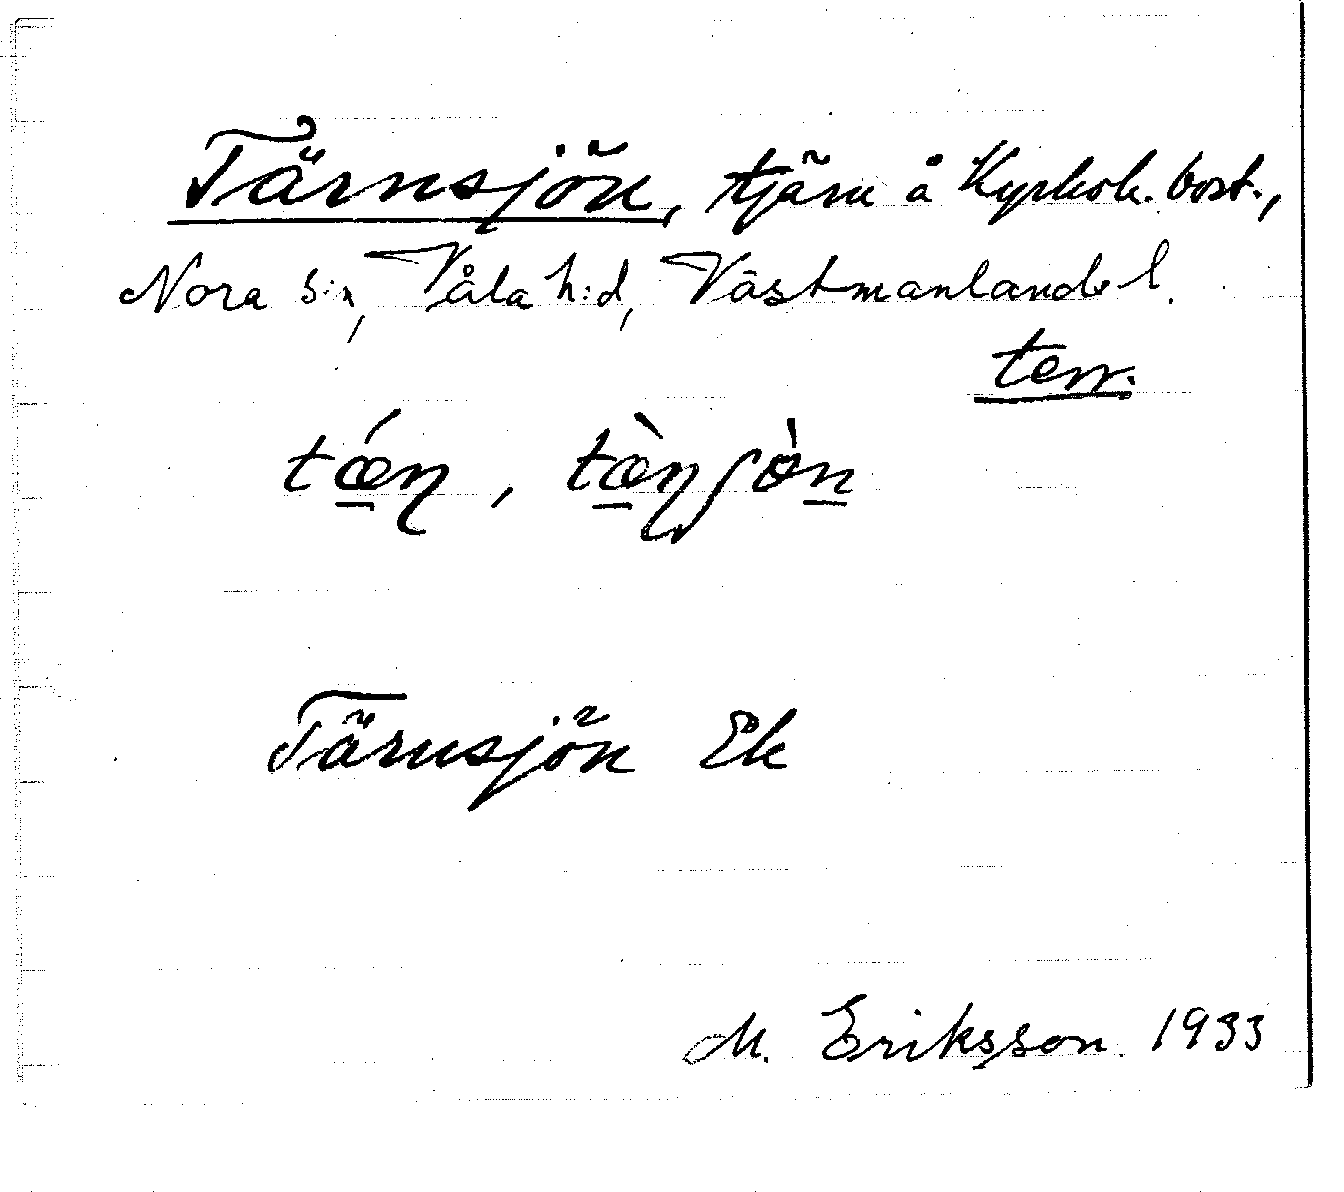 Tärnsjön, tjärn å Kyrkok. bost.,
Nora s:n, Våla h:d, Västmanlands l.
terr.
tǽn̡, tæ̀n̡ʃòn
Tärnsjön Ek
M. Eriksson 1933